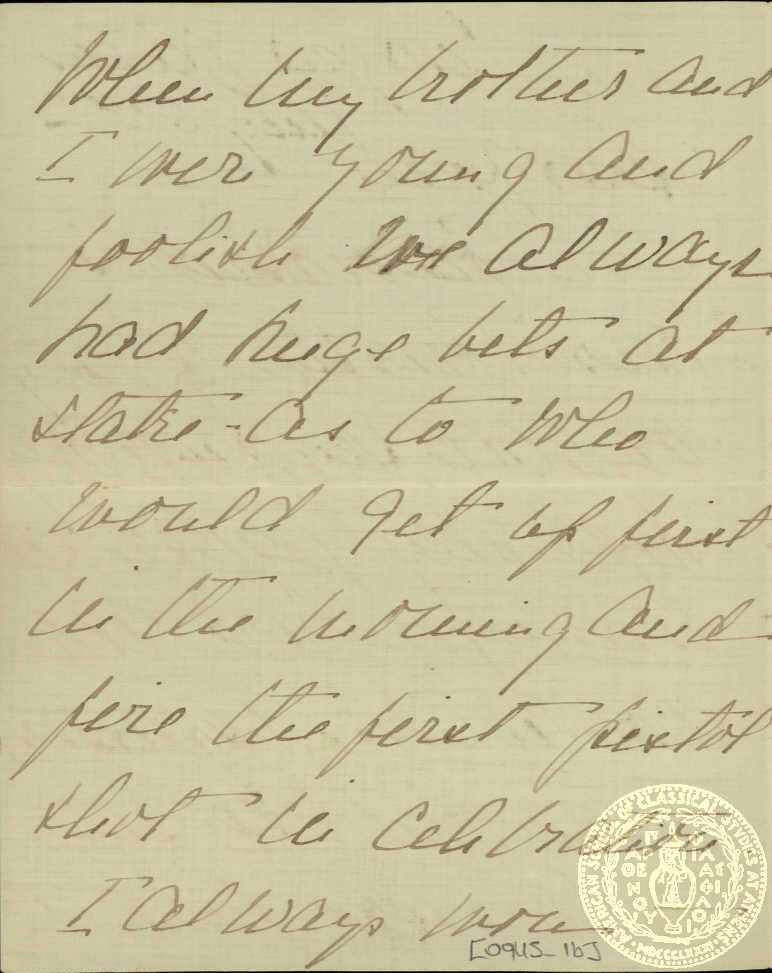 When my brother and
I were young and
foolish we always
had huge bets at
stake - as to who
would get up first
in the morning and
fire the first pistol
shot in celebration
I always won
[0945_1b]
AMERICAN SCHOOL OF CLASSICAL STUDIES AT ATHENS
MDCCCLXXXI
ΠΑΡΘΕΝΟΥ ΦΙΛΑΣ ΦΙΛΟΙ